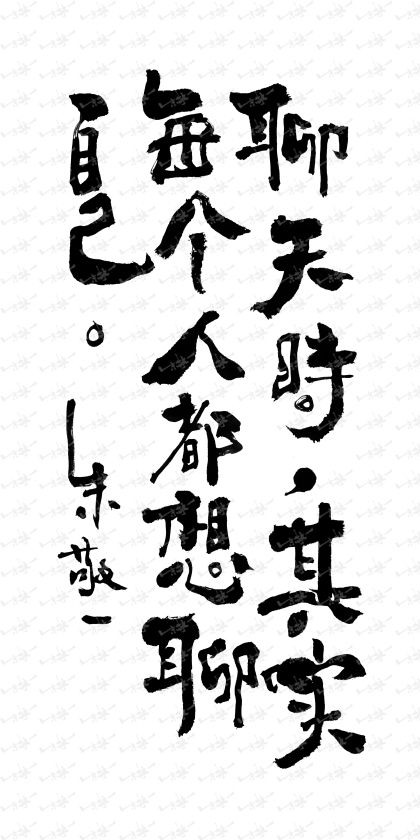 聊天時，其实
每个人都想聊
自己。
朱敬一